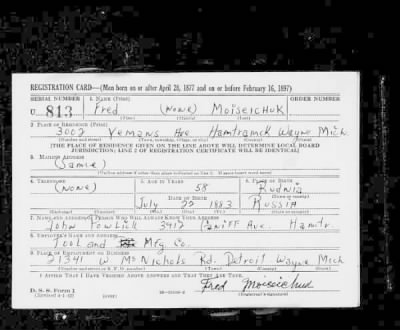 REGISTRATION CARD—(Men born on or after April 28, 1877 and on or before February 16, 1897)
SERIAL NUMBER 1. NAME (Print) ORDER NUMBER
U 813 Fred (None) Moiseichuk
2. PLACE OF RESIDENCE (Print)
3002 Yemans Ave Hamtramck Wayne Mich.
(Number and street) (Town, township, village, or city) (County) (State)
[THE PLACE OF RESIDENCE GIVEN ON THE LINE ABOVE WILL DETERMINE LOCAL BOARD
JURISDICTION; LINE 2 OF REGISTRATION CERTIFICATE WILL BE IDENTICAL]
3. MAILING ADDRESS
(Same)
[Mailing address if other than place indicated on line 2. If same insert word same]
4. TELEPHONE 5. AGE IN YEARS 6. PLACE OF BIRTH
(None) 58 Rudnia
DATE OF BIRTH (Town or county)
July 22 1883 Russia
(Exchange) (Number) (Mo.) (Day) (Yr.) (State or country)
7. NAME AND ADDRESS OF PERSON WHO WILL ALWAYS KNOW YOUR ADDRESS
John 3912 Caniff Ave. Hamtr.
8. EMPLOYER'S NAME AND ADDRESS
Tool and Mfg Co.
9. PLACE OF EMPLOYMENT OR BUSINESS
21341 W Mc Nichols Rd. Detroit Wayne Mich
(Number and street or R. F. D. number) (Town) (County) (State)
I AFFIRM THAT I HAVE VERIFIED ABOVE ANSWERS AND THAT THEY ARE TRUE.
Fred Moiseichuk
D. S. S. Form 1
(Revised 4-1-42) (Registrant's signature)